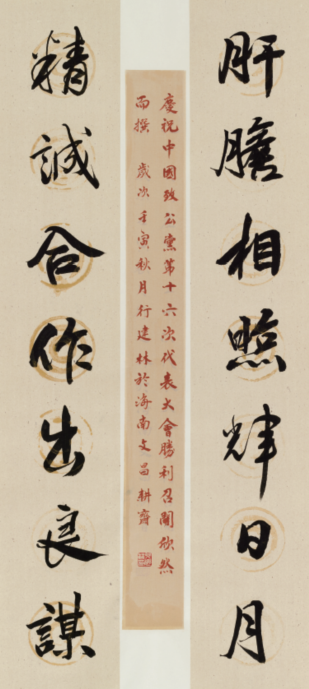 肝膽相照輝日月
慶祝中國致公黨第十六次代表大會勝利召開欣然
而撰 歲次壬寅秋月行建林於濟南文昌耕齋
精誠合作出良謀